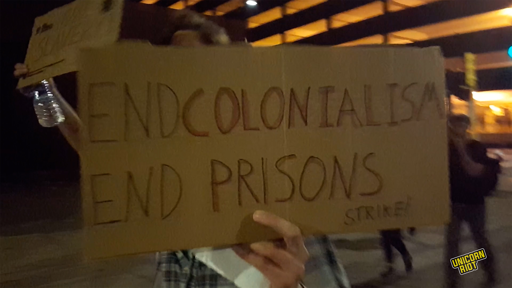 ENDCOLONIALISM
END PRISONS
STRIKE!
UNICORN
RIOT